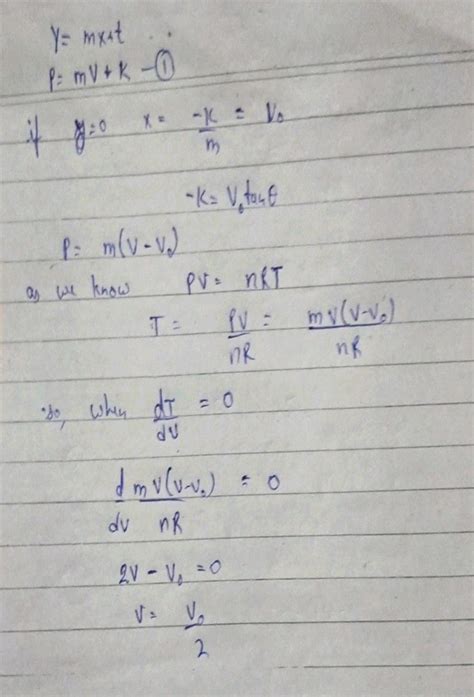 Y = mx+t
P = mV + K - ①
if y=0 x = -K/m = V₀
-K = V₀ tanθ
P = m(V - V₀)
as we know PV = nRT
T = PV/nR = mV(V-V₀)/nR
so, when dT/dV = 0
d/dV mV(V-V₀)/nR = 0
2V - V₀ = 0
V = V₀/2